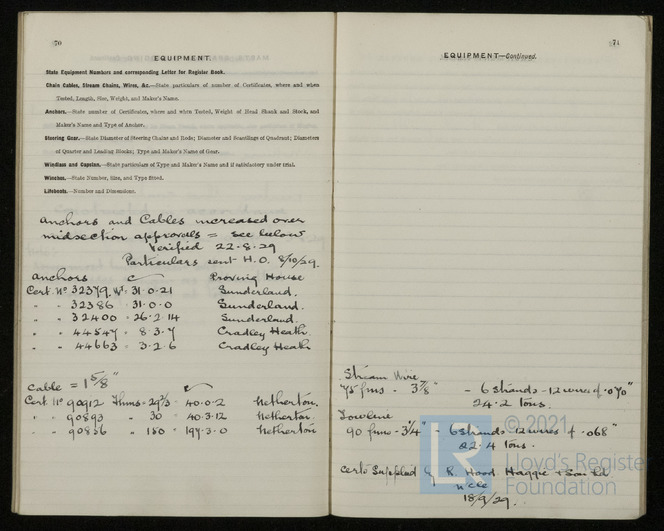 70
EQUIPMENT.
State Equipment Numbers and corresponding Letter for Register Book.
Chain Cables, Stream Chains, Wires, &c.—State particulars of number of Certificates, where and when
Tested, Length, Size, Weight, and Maker's Name.
Anchors.—State number of Certificates, where and when Tested, Weight of Head Shank and Stock, and
Maker's Name and Type of Anchor.
Steering Gear.—State Diameter of Steering Chains and Rods; Diameter and Scantlings of Quadrant; Diameters
of Quarter and Leading Blocks; Type and Maker's Name of Gear.
Windlass and Capstan.—State particulars of Type and Maker's Name and if satisfactory under trial.
Winches.—State Number, Size, and Type fitted.
Lifeboats.—Number and Dimensions.
Anchors and Cables increased over
midsection approvals = see below
Verified 22.8.29
Particulars sent H.O. 8/10/29.
Anchors Proving House
Cert. No 32379. Wt. 31.0.21 Sunderland.
" " 32386 " 31.0.0 Sunderland.
" " 32400 " 26.2.14 Sunderland.
" " 44547 " 8.3.7 Cradley Heath.
" " 44663 " 3.2.6 Cradley Heath
Cable = 1 5/8"
Cert No 90912 40.0.2 Netherton.
" " 90893 " 30 " 40.3.12 Netherton.
" " 90856 " 150 " 197.3.0 Netherton
71
EQUIPMENT—Continued.
Stream Wire
75 fms - 3 7/8" - 6 strands - 12 wires of .070"
24.2 tons.
Towline
90 fms - 3 1/4" - 6 strands 12 wires of .068"
22.4 tons.
Certs Supplied by R. Hood Haggie & Son Ld
N'cle
18/9/29.
LR
© 2021
Lloyd's Register
Foundation